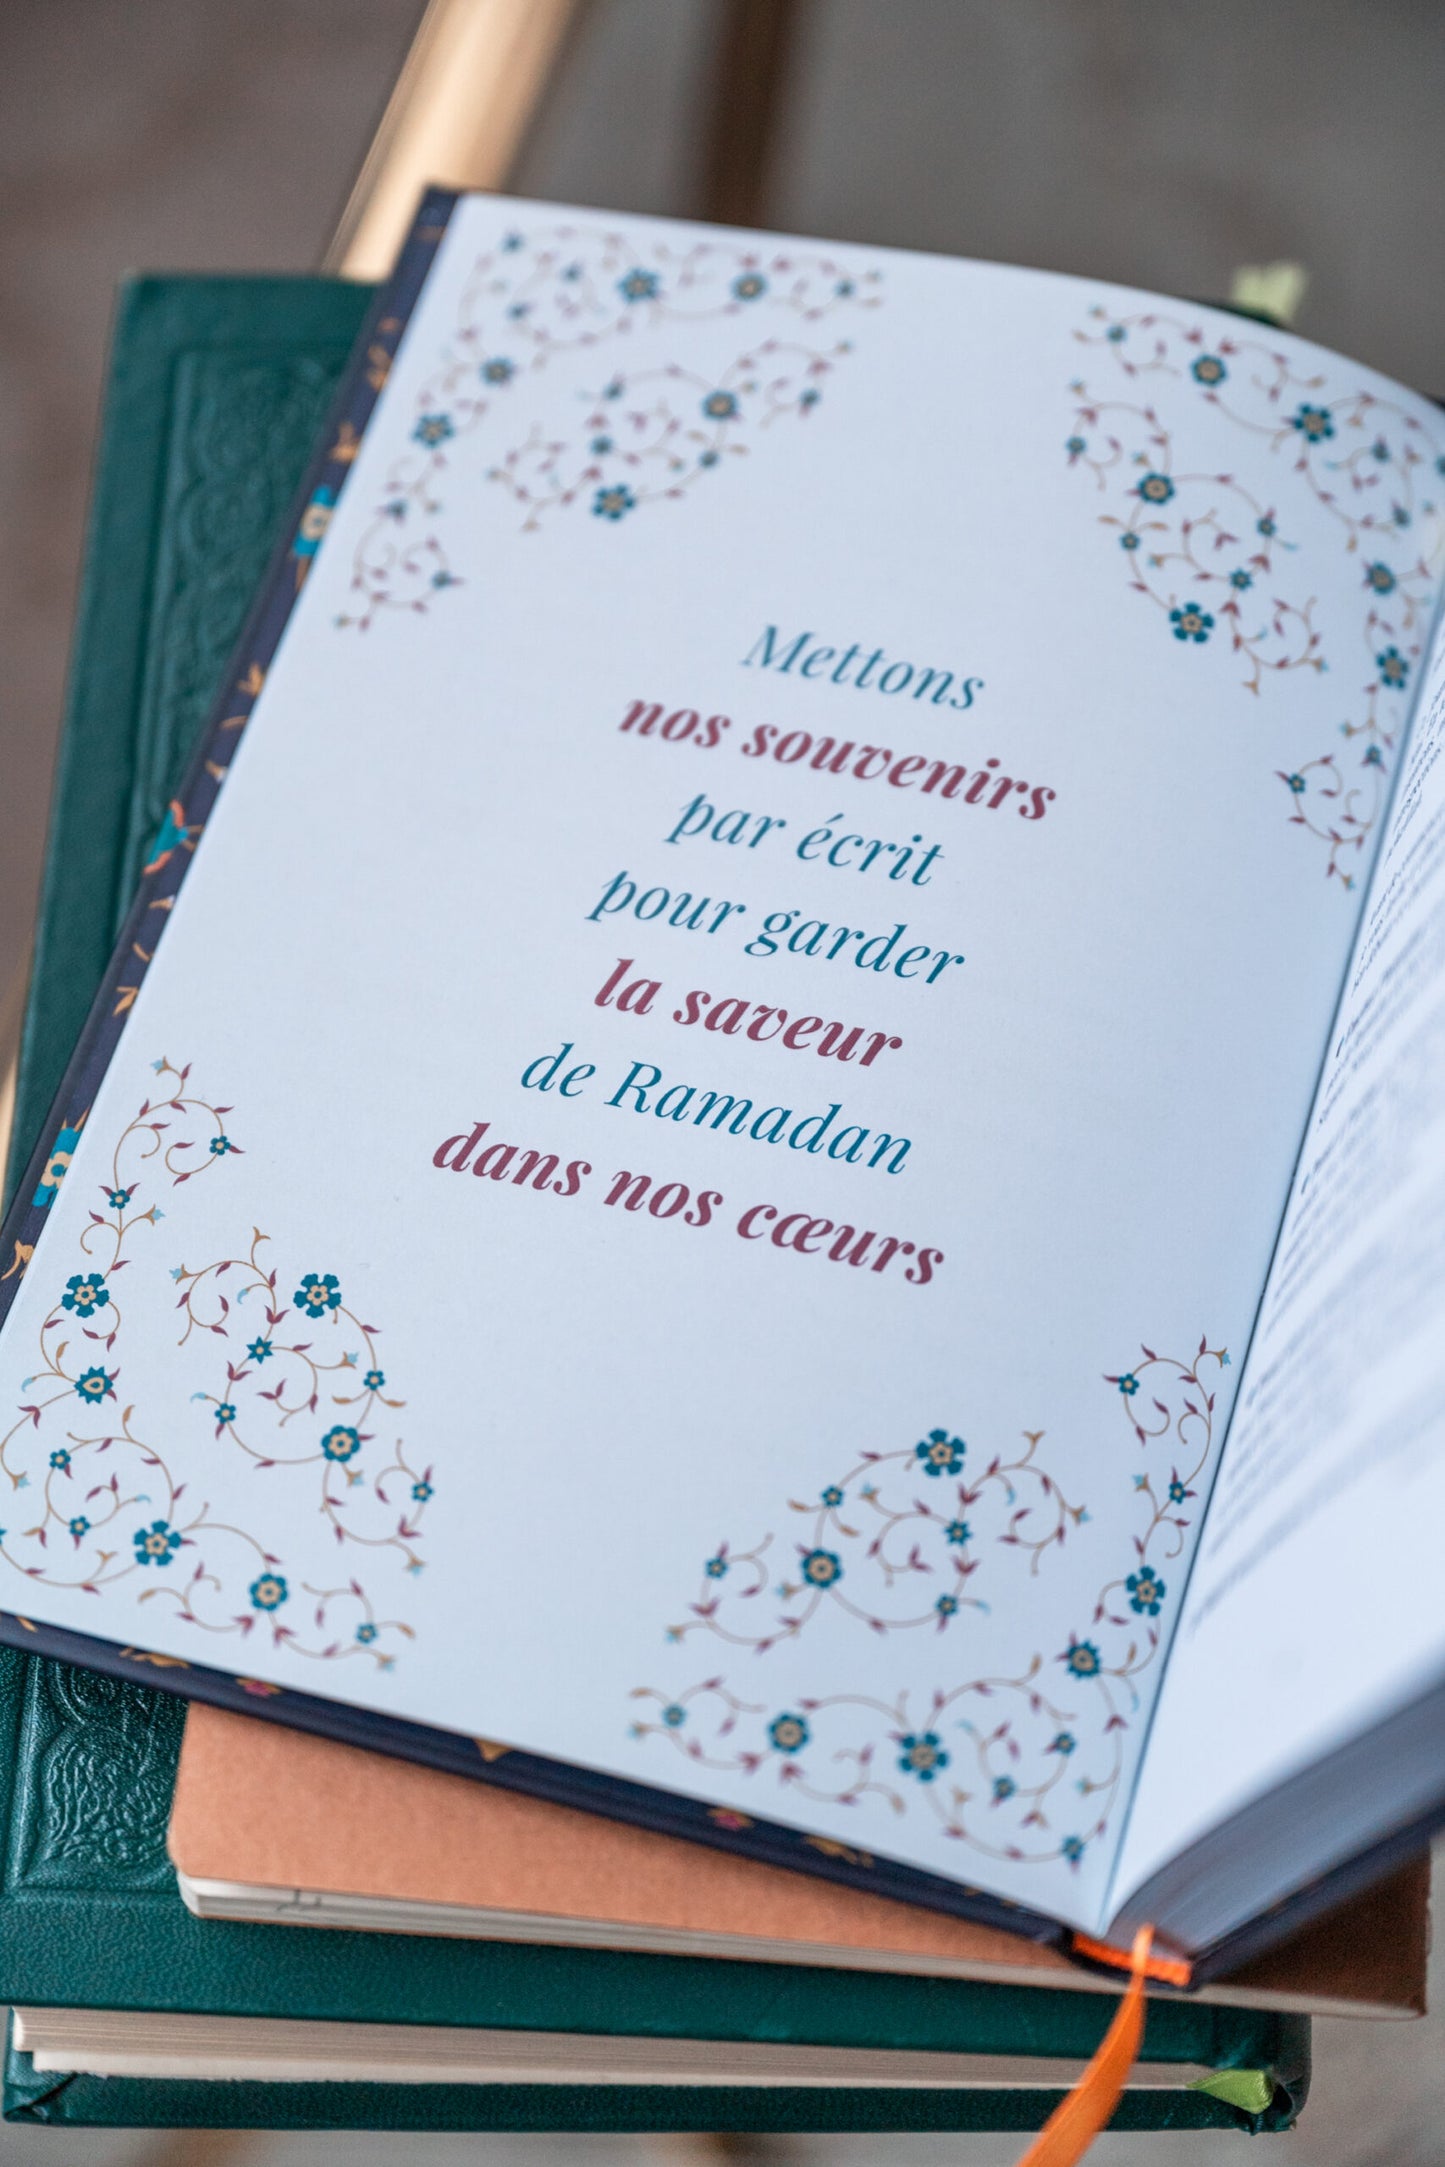 Mettons
nos souvenirs
par écrit
pour garder
la saveur
de Ramadan
dans nos cœurs